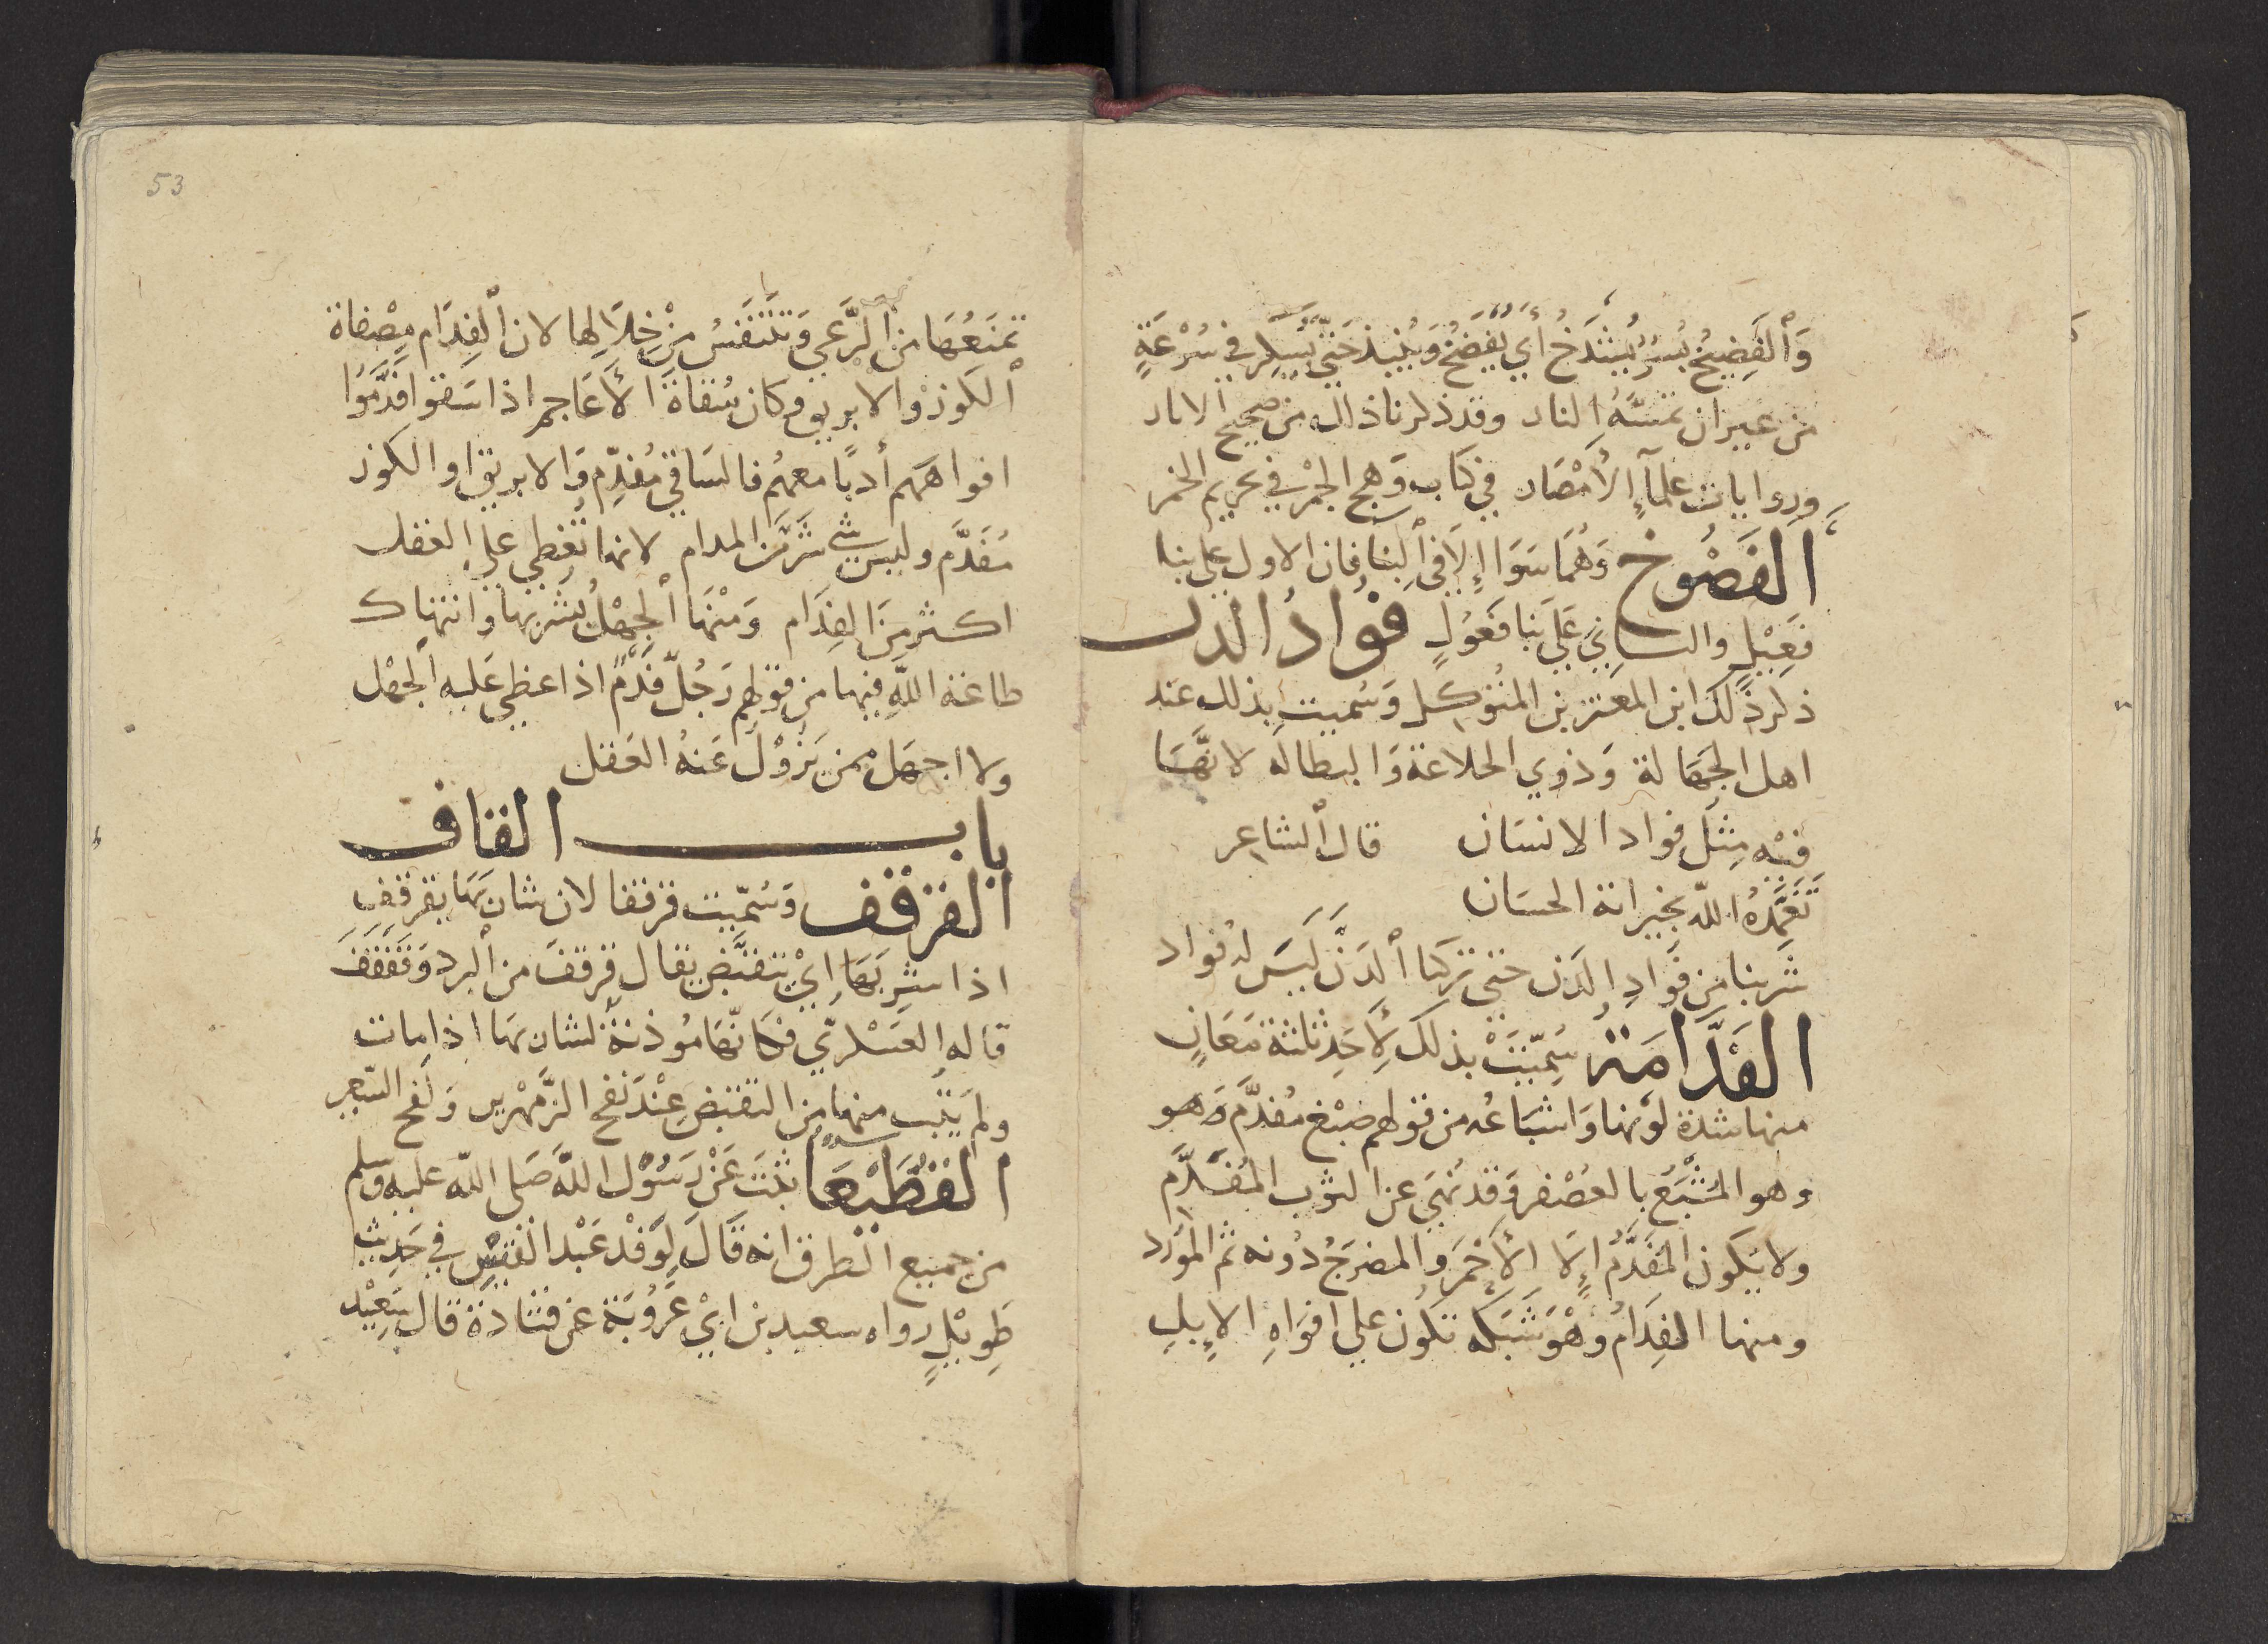 وَالْفَضِيخُ بُسْرٌ يُشْدَخُ أَيْ يُفْضَخُ وَيُنبذ حَتّي يُسكِر فِي سُرْعَةٍ
من غير ان تمسَّهُ النار وقد ذكرنا ذلك من صحيح الاثار
وروايات علمآءِ الأمْصَار في كتاب وَهج الجمْر في تحريم الخمر
الفَضُوخ وَهُمَا سَوَا إِلا في البِنَا فان الاول علي بنا
فَعِيْلٍ والثاني عَلَي بنا فَعُولٍ فؤادُ الدن
ذكر ذلك ابن المعتز بن المتوكل وَسُميت بذلك عند
اهل الجهَالة وَذوي الخلاعة وَالبطالة لانَّهَا
فيْه مِثل فواد الانسَان قال الشاعر
تَغَمَّدهُ اللّه بخيراته الحسَان
شَربنا مِن فَوَادِ الدَن حتي تركنا الدَنَّ لَيسَ لهُ فواد
الفَدَّامَة سُمِّيَتْ بذلك لأَحَدِ ثلثة مَعَانٍ
منها شدة لونها وَاشبَاعُه من قولهم صبْغ مُفدَّم وَهو
وهو المُشْبَعُ بالعُصْفر وَقد نُهيَ عن الثوب المُفَدَّم
ولا يَكون المُفَدَّمُ إِلا الأَحْمَر والمضرَجُ دُونه ثم المُورَّد
ومنها الفِدَامُ وَهْوَ شَبَكة تكُون علي افوَاهِ الإبِلِ
53
تمنَعُهَا من الرَّعي وَتتنَفّسُ مِنْ خِلاَلِها لان الفِدَام مِصْفاة
الكوز والابريق وكان سُقاةَ الأعَاجم اذا سَقوا فدَّمُوا
افواههَم أدبًا معهُم فالسَاقي مُفدِّم وَالابريق او الكوز
مُفَدَّم وليس شي شرَّ مِّن المدام لانها تُغطي علي العقل
اكثر مِنَ الفِدَام وَمنْهَا الجهْلُ بشربها وَانتهاك
طاعة اللّه فيها مِن قولهِم رَجُلٌ فَدْمٌ اذا غطي عَليه الجهْل
ولا اجهَل ممن يَزُوْل عَنهُ العَقل
باب القاف
القَرْقَف وَسُمّيت قرقفا لان شاربَهَا يقرقِف
اذا شرِبَهَا ايْ يتقبَّض يقال قرقفَ من البرد وَقَفقَفَ
قاله العَسْكريّ فكانّهَا مُوذنةٌ لشاربهَا اذا مات
ولم يَتُب منها من التقبّض عِنْد نَفح الزَّمْهرير وَلفح السَّعير
القُطَيْعَا ثبْتَ عَنْ رَسُوْل اللّه صَلى اللّه عليه وسلم
من جميع الطرق انه قَالَ لِوَفْد عَبْد القَيْس فِي حَديث
طِوِيْلٍ رواه سعيد بن ابيْ عَرُوْبَة عَن قتَادَة قال سَعِيْد